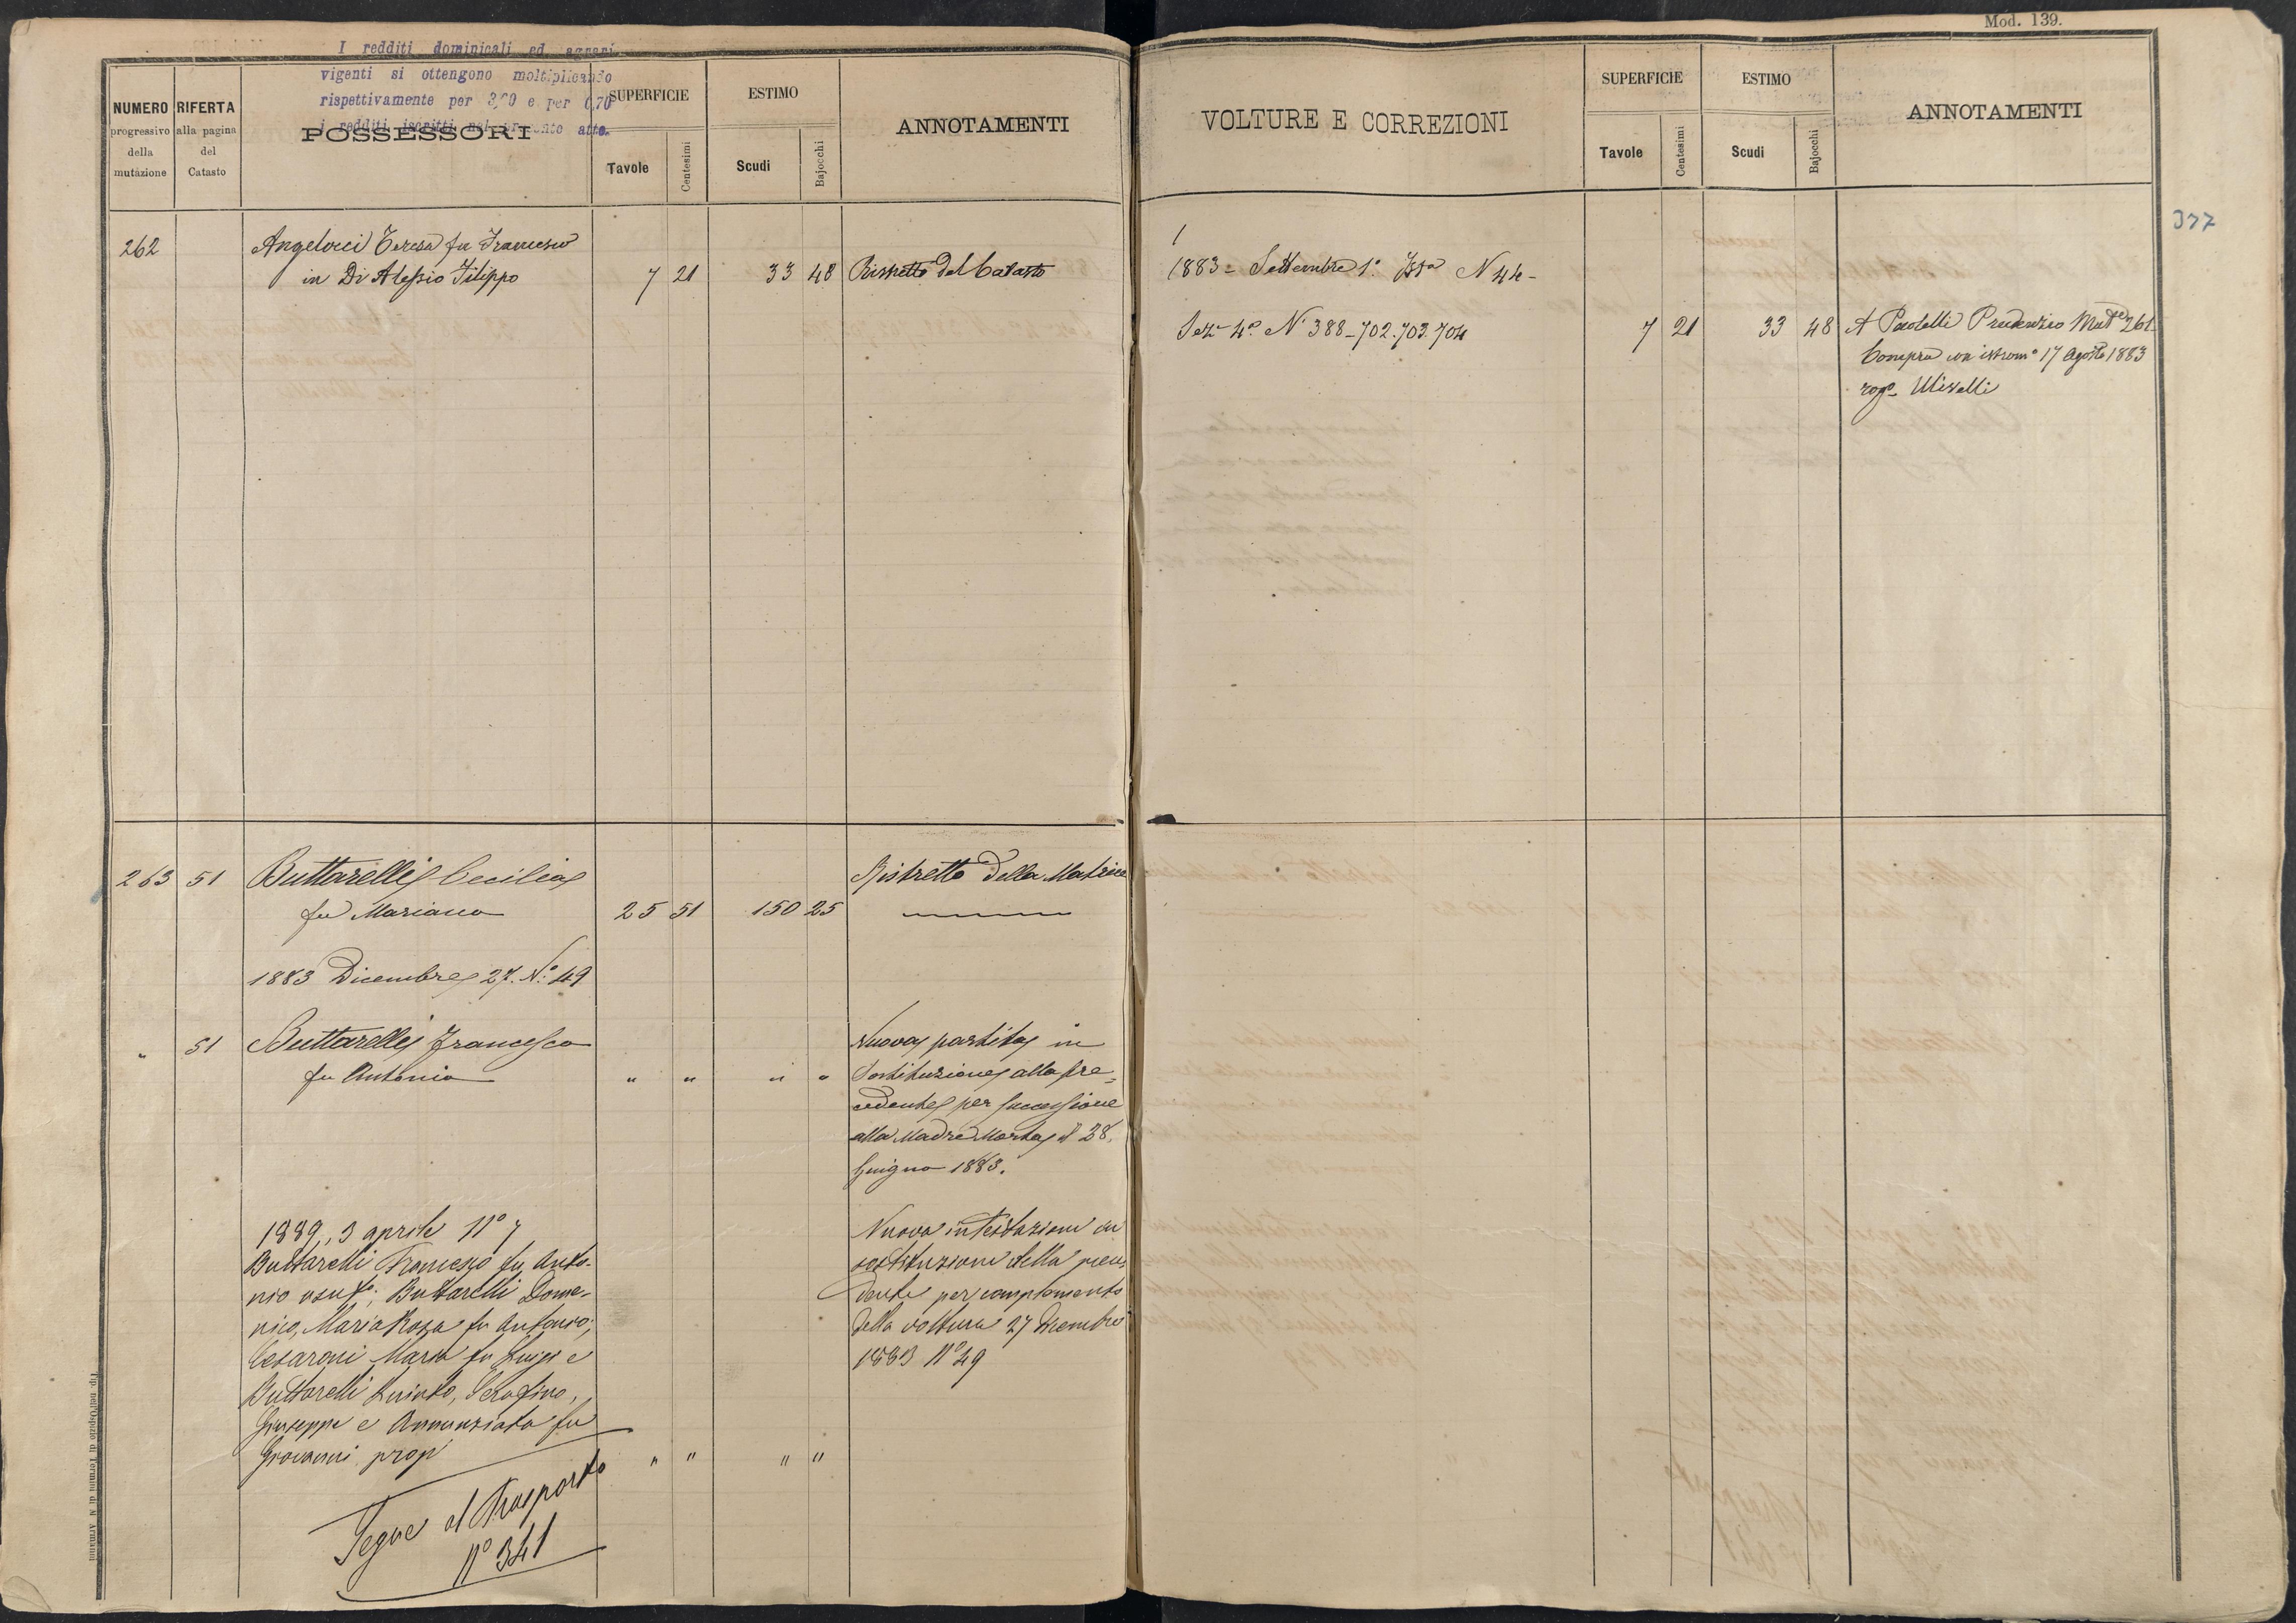 Mod. 139.
I redditi dominicali ed agrari
vigenti si ottengono moltiplicando
rispettivamente per 3,00 e per 0,70
i redditi iscritti nel presente atto.
NUMERO
progressivo
della
mutazione
RIFERTA
alla pagina
del
Catasto
POSSESSORI
SUPERFICIE
Tavole
Centesimi
ESTIMO
Scudi
Bajocchi
ANNOTAMENTI
262 Angelucci Teresa fu Francesco
in Di Alessio Filippo 7 21 33 48 Ristretto del Catasto
263 51 Buttarelli Cecilia Ristretto della Matrice
fu Mariano 25 51 150 25
1883 Dicembre 27. N.° 49
" 51 Buttarelli Francesco Nuova partita in
fu Antonio " " " " Sostituzione alla pre=
cedente per successione
alla Madre Morta il 28.
Giugno 1883.
1889, 3 aprile N° 7 Nuova intestazione in
Buttarelli Francesco fu Anto- sostituzione della prece
nio usuf.; Buttarelli Dome- dente per complemento
nico, Maria Rosa fu Antonio; della voltura 27 Dicembre
Cesaroni Maria fu Luigi e 1883 N° 49
Buttarelli Quinto, Serafino,
Giuseppe e Annunziata fu
Giovanni prop " " " "
Segue al Trasporto
N° 341
Tip. nell'Ospizio di Termini di N. Armanni
VOLTURE E CORREZIONI
SUPERFICIE
Tavole
Centesimi
ESTIMO
Scudi
Bajocchi
ANNOTAMENTI
377
1
1883 = Settembre 1° N 44 -
Sez.e 4a N° 388 - 702. 703. 704 7 21 33 48 A Paolelli Prudenzio Mat.e 261
Compra con istrom.o 17 Agosto 1883
rog.o